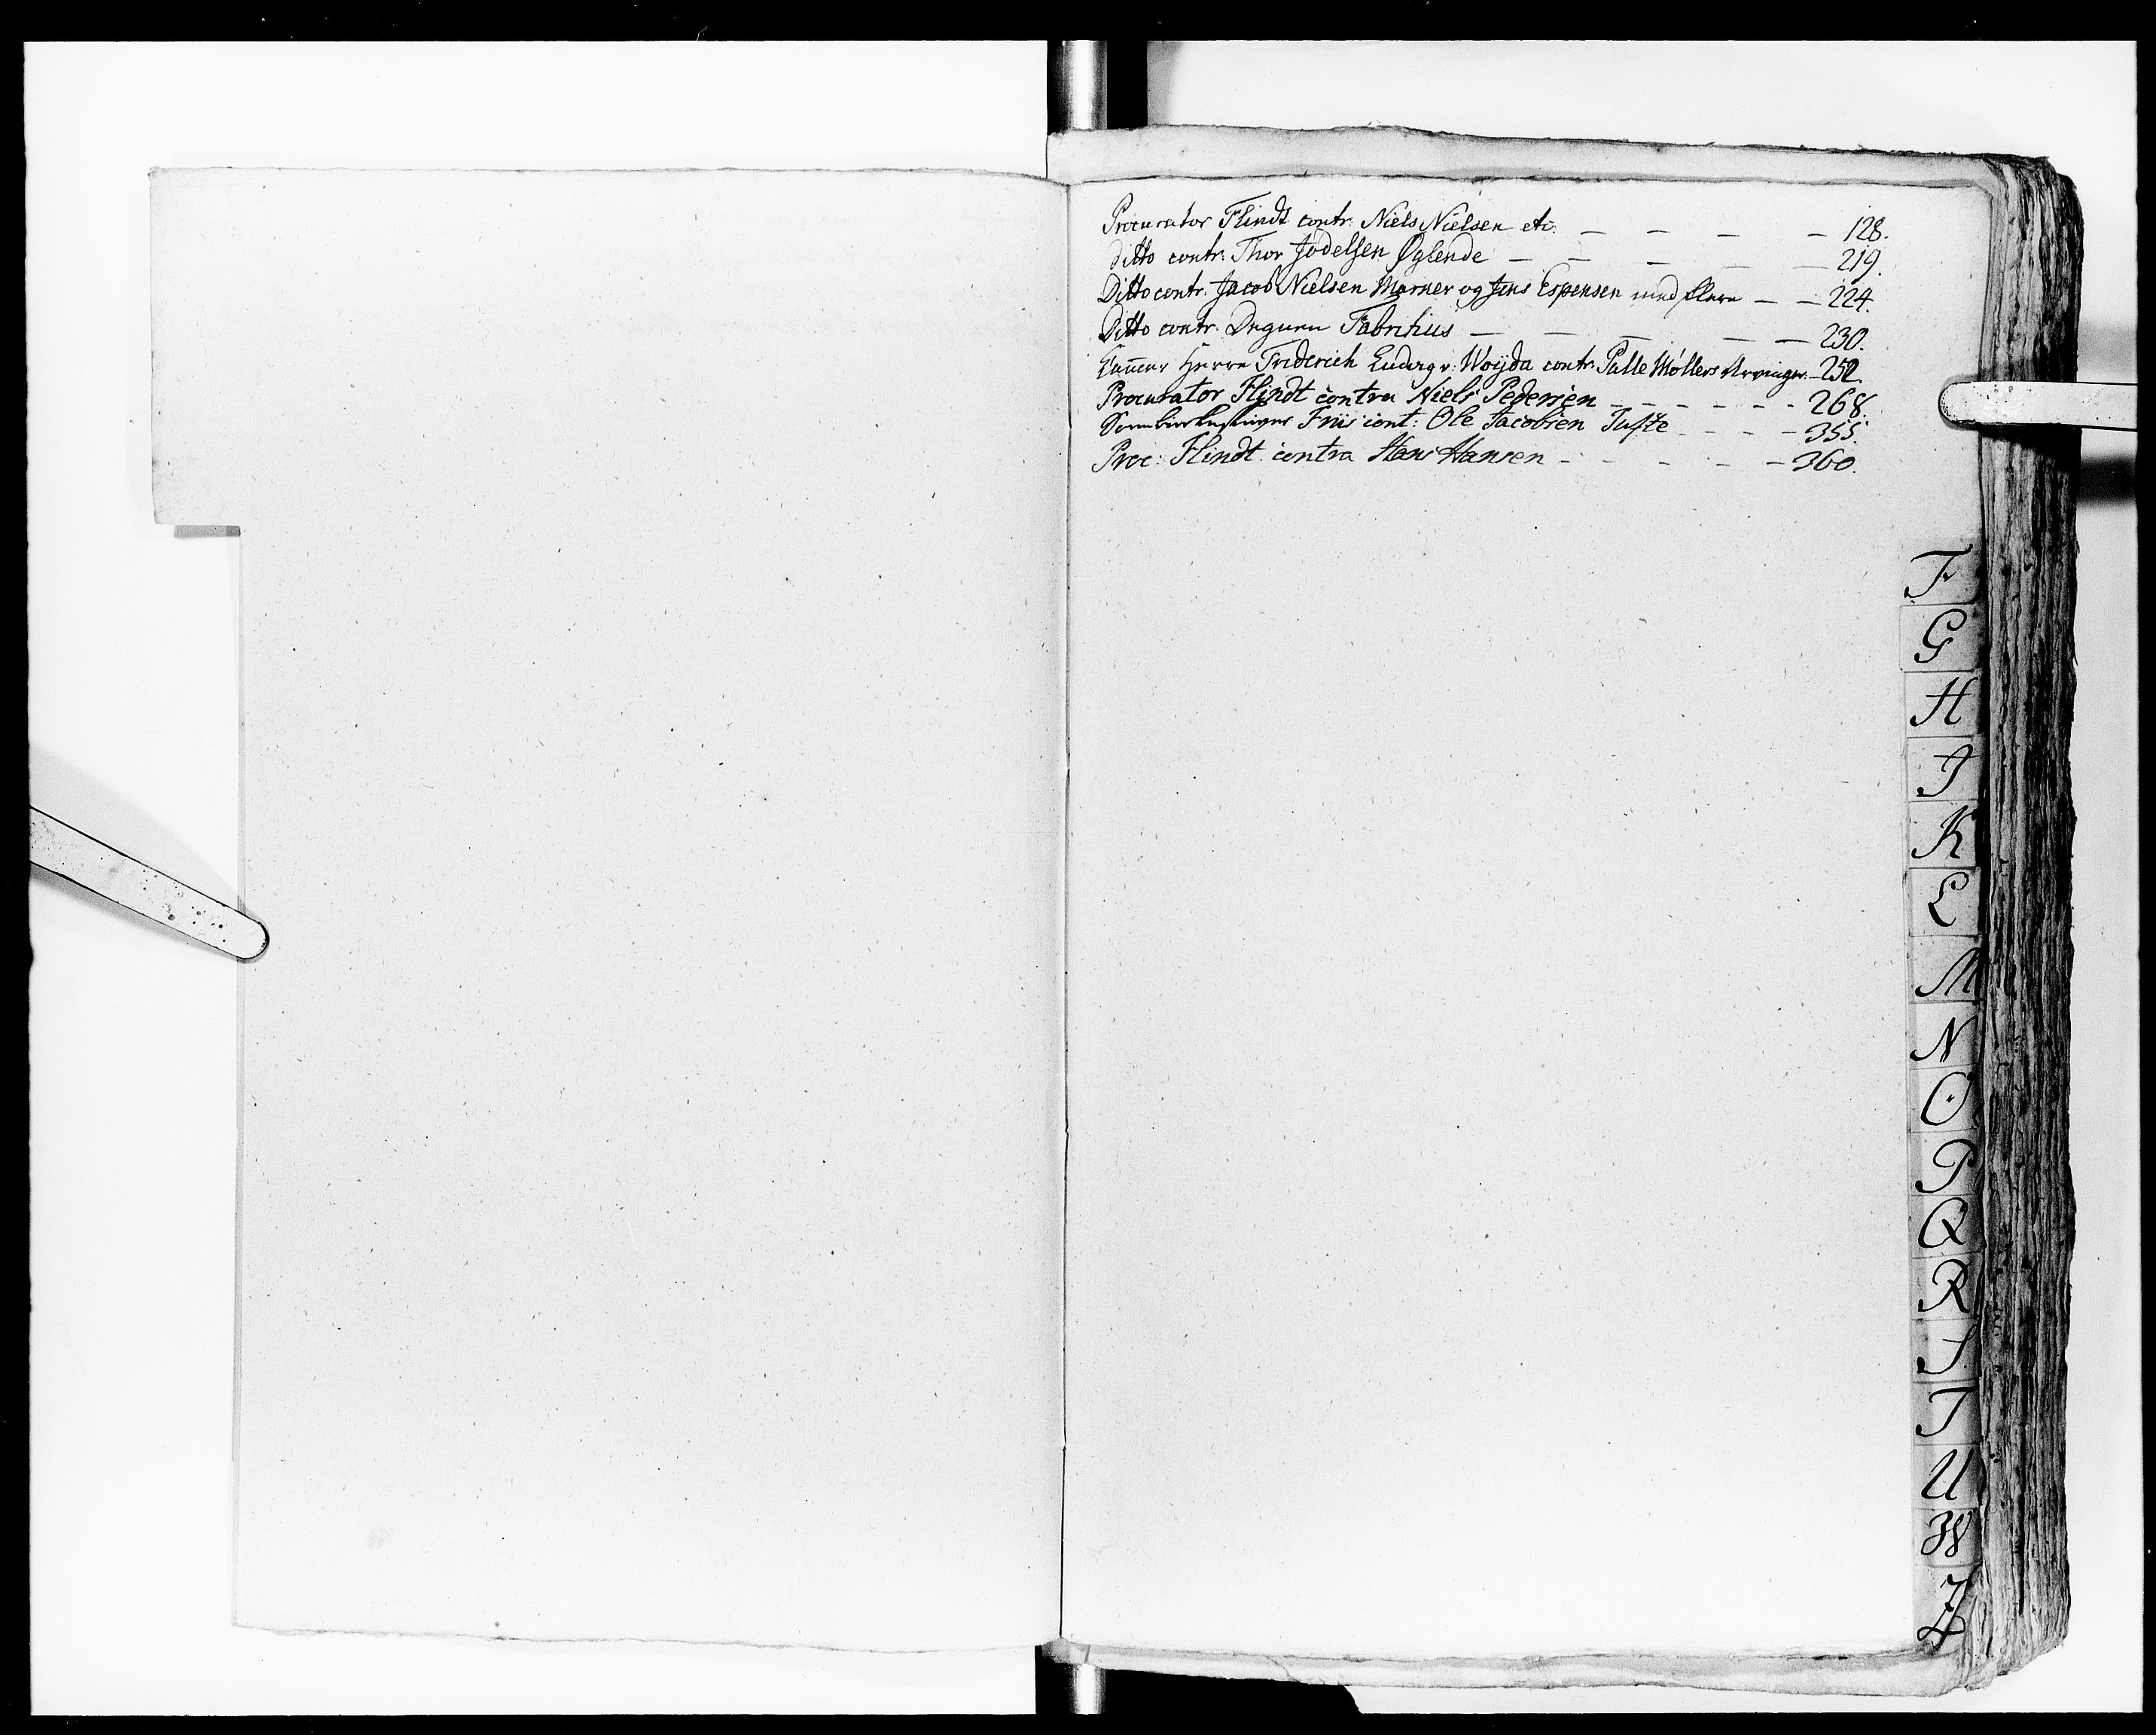 Procurator Flindt contr. Niels Nielsen etc. — — — — 128.
ditto contr. Thor Jödelsen Øglende — — — — — 219.
Ditto contr. Jacob Nielsen Marner og Jens Espensen med flere — — 224.
Ditto contr. Degnen Fabritius — — — — — 230.
Herre Friderich Ludvig v. Woyda contr. Palle Møllers Arvinger — 252.
Procurator Flindt contra Niels Pedersen - - - - - - 268.
Friis cont: Ole Jacobsen Tufte - - - - 355.
Proc: Flindt contra Hans Hansen - - - - - 360.
F
G
H
I
K
L
M
N
O
P
Q
R
S
T
U
W
Z